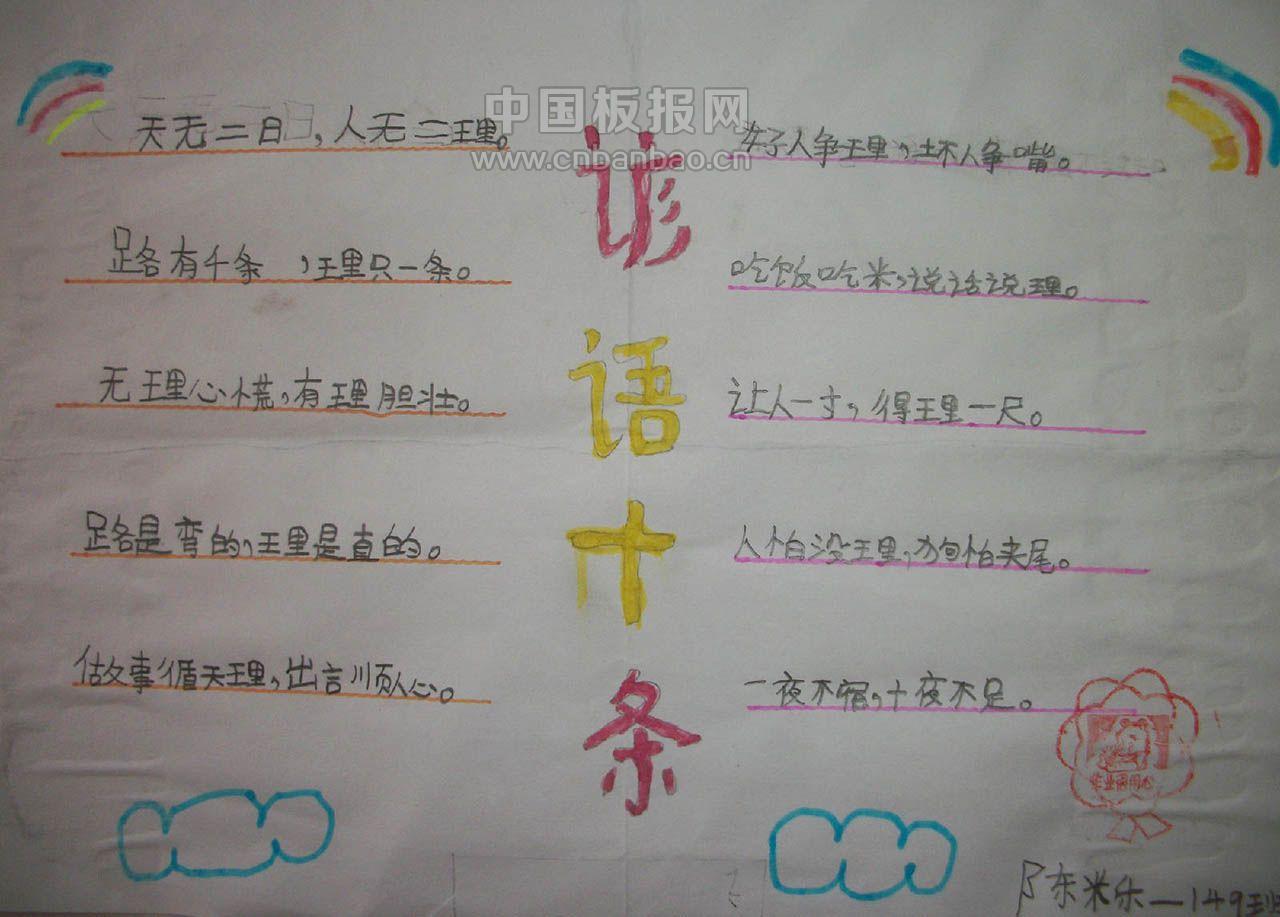 中国板报网
www.cnbanbao.cn
谚语十条
天无二日，人无二理。
路有千条，理只一条。
无理心慌，有理胆壮。
路是弯的，理是直的。
做事循天理，出言顺人心。
好人争理，坏人争嘴。
吃饭吃米，说话说理。
让人一寸，得理一尺。
人怕没理，狗怕夹尾。
一夜不宿，十夜不足。
陈米乐—149班